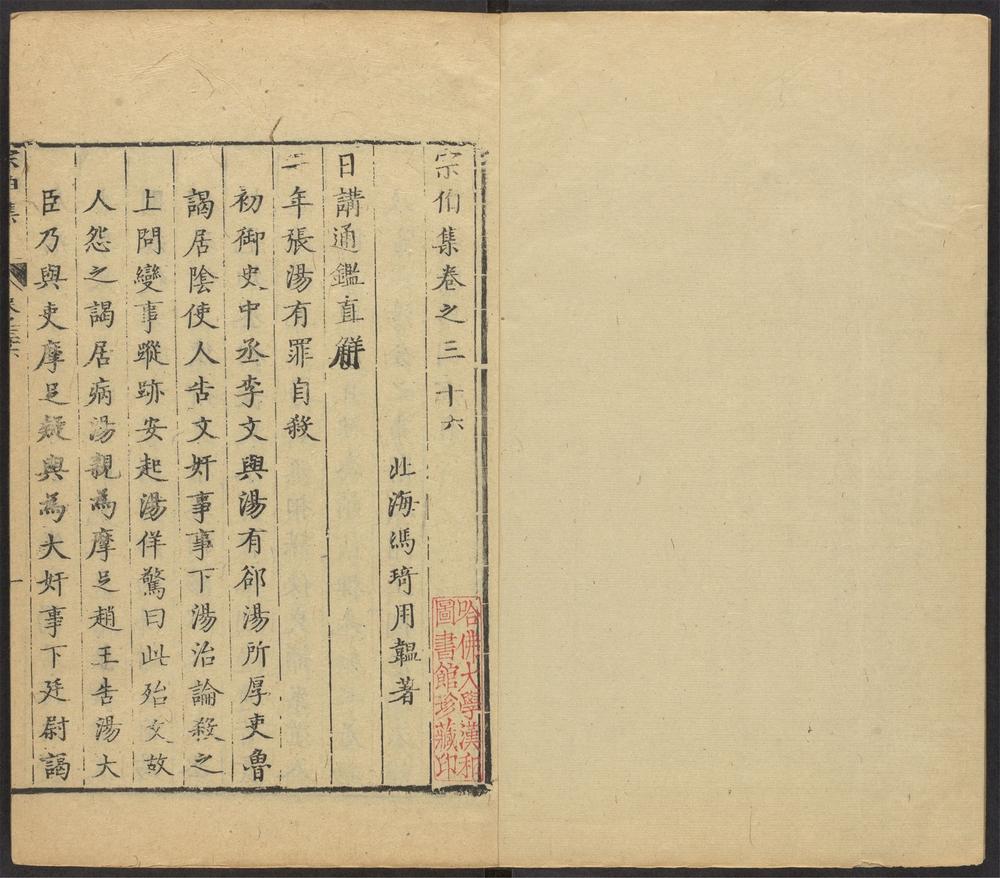 宗伯集卷之三十六
北海馮琦用韞著
日講通鑑直解
二年張湯有罪自殺
初御史中丞李文與湯有郤湯所厚吏魯
謁居陰使人告文奸事事下湯治論殺之
上問變事蹤跡安起湯佯驚曰此殆文故
人怨之謁居病湯親為摩足趙王告湯大
臣乃與吏摩足疑與為大奸事下廷尉謁
宗伯集
卷三十六
一
哈佛大學漢和
圖書館珍藏印